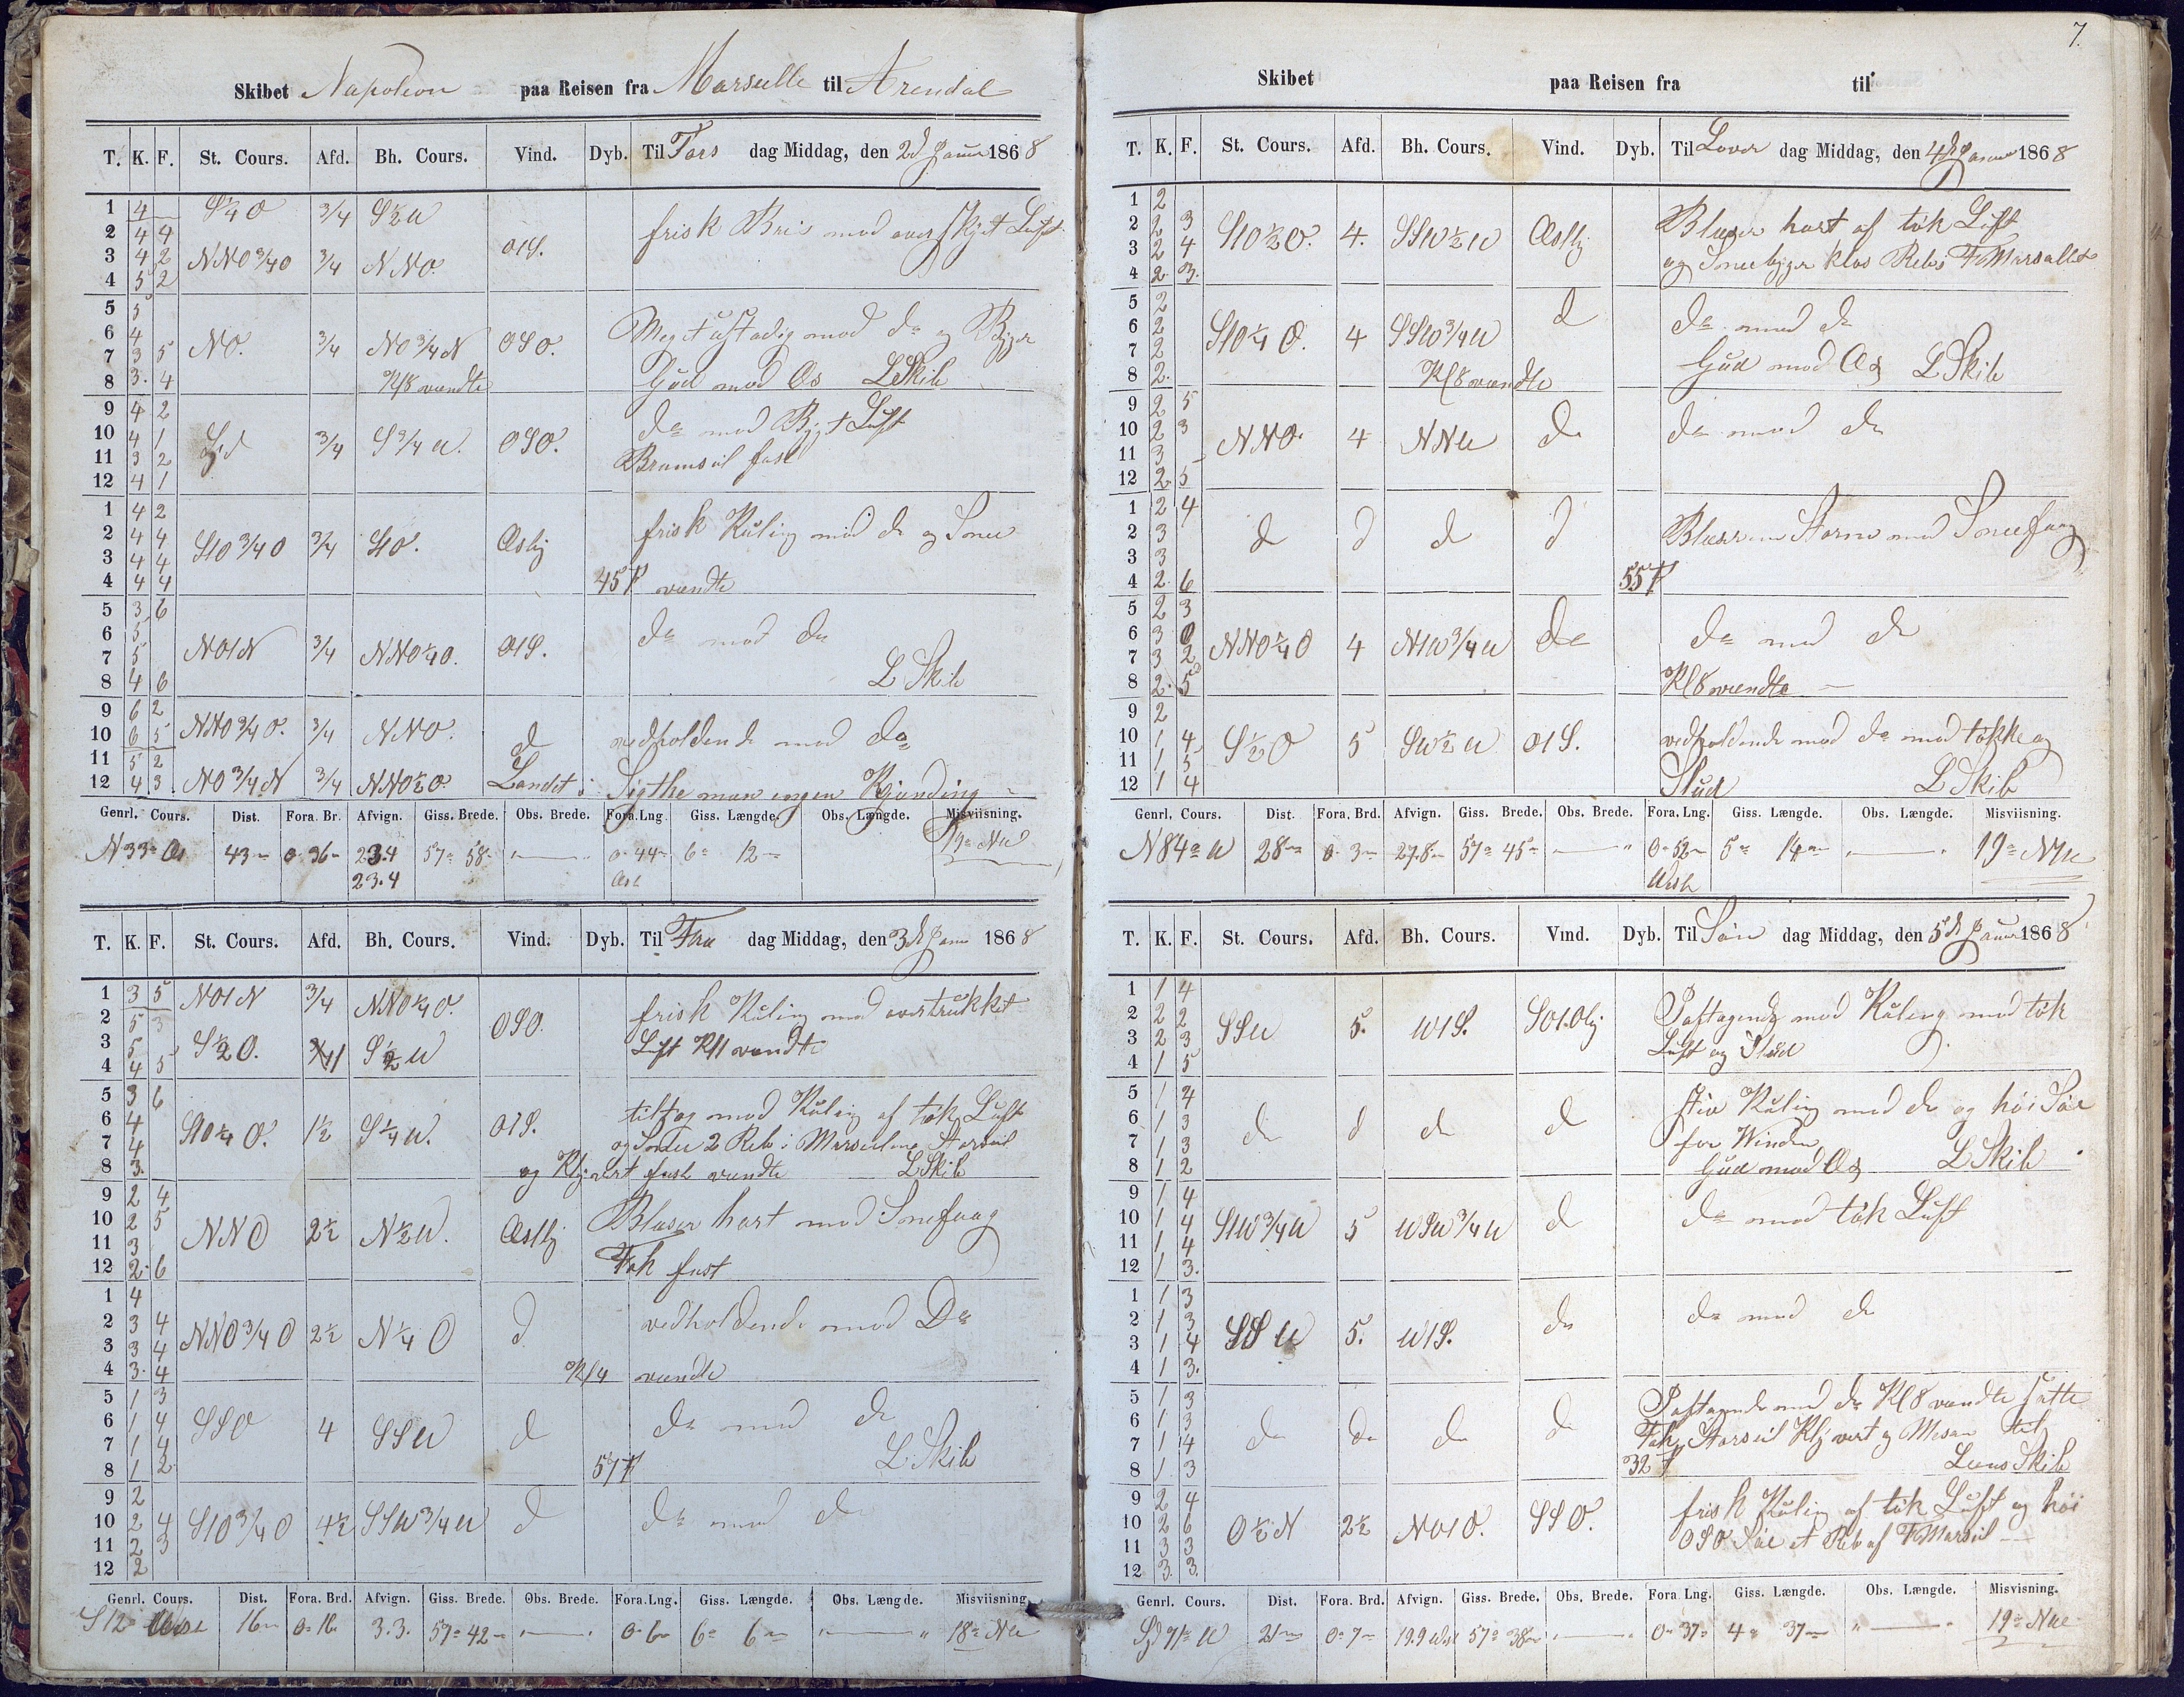 7.
Skibet Napoleon paa Reisen fra Marseille til Arendal
T. K. F. St. Cours. Afd. Bh. Cours. Vind. Dyb. Til Tors dag Middag, den 2d Januar 1868
1 4 S¼O 3/4 S½W
2 4 4 frisk Bris med overskyet Luft
3 4 2 NNO3/4O 3/4 NNO O1S.
4 5 2
5 5
6 4 Meget ustadig med do og Byger
7 3 5 NO. 3/4 NO3/4N OSO.
8 3. 4 Kl 8 vendte Gud med Os L Skib
9 4 2
10 4 1 Syd 3/4 S3/4W. OSO. do med Byget Luft
11 3 2 Bramseil fast
12 4 1
1 4 2
2 4 4 frisk Kuling med do og Snee
3 4 4 S1O3/4O 3/4 S1O. Østlig
4 4 4 45 f vendte
5 3 6
6 5 do med do
7 5 NO1N 3/4 NNO¼O. O1S.
8 4 6 L Skib
9 6 2
10 6 5 NNO3/4O. 3/4 NNO. d vedholdende med do
11 5 2
12 4 3 NO3/4N 3/4 NNO½O. Landet i Sigthe men ingen Kjending
Genrl. Cours. Dist. Fora. Br. Afvign. Giss. Brede. Obs. Brede. Fora. Lng. Giss. Længde. Obs. Længde. Misviisning.
N 33° Ost 43 0 36 23.4 57° 58 0 44 Ost 6° 12 19° NW
23.4
T. K. F. St. Cours. Afd. Bh. Cours. Vind. Dyb. Til Fre dag Middag, den 3d Janu 1868
1 3 5 NO1N 3/4 NNO¼O.
2 5 3 OSO. frisk Kuling med overtrukket
3 5 S½O. S½W Luft Kl 1 vendte
4 4 5
5 3 6
6 4 S1O¼O. 1½ S¼W. O1S. tiltag med Kuling af tøk Luft
7 4 og Snee 2 Reb i Merseilene Storseil
8 3. og Klyvert fast vendte L Skib
9 2 4
10 2 5 NNO 2½ N½W. Østlig Blæser hart med Snefaag
11 3
12 2. 6 Fok fast
1 4
2 3 4 NNO3/4O 2½ N¼O d vedholdende med Do
3 3 4
4 3. 4 Kl 4 vendte
5 1 3
6 1 4 SSO 4 SSW d do med do
7 1 4
8 1 2 57 f L Skib
9 2
10 2 4 S1O3/4O 4½ SSW3/4W d do med do
11 2 3
12 2
Genrl. Cours. Dist. Fora. Brd. Afvign. Giss. Brede. Obs. Brede. Fora. Lng. Giss. Længde. Obs. Længde. Misviisning.
S 12 16 0 16 3.3. 57° 42 0 6 6° 6 18° NW
Skibet paa Reisen fra til
T. K. F. St. Cours. Afd. Bh. Cours. Vind. Dyb. Til Løver dag Middag, den 4d Januar 1868
1 2
2 2 3 S1O½O. 4. SSW½W Østlig Blæser hart af tök Luft
3 2 4 og Sneebyger klos Rebs F Marsallet
4 2. 3.
5 2
6 2 S1O¼O. 4 SSW3/4W d do med do
7 2 Gud med Os L Skib
8 2. Kl 8 vendte
9 2 5
10 2 3 NNO. 4 NNW do do med do
11 3
12 2. 5
1 2 4
2 3 d d d d Blæser en Storm med Sneefaag
3 3
4 2. 6 55 f
5 2 3
6 3 0 NNO¼O 4 N1W3/4W do do med do
7 3 2
8 2. 5 Kl 8 vendte
9 2
10 1 4 S½O 5 SW½W O1S. vedholdende med do med tökke og
11 1 5
12 1 4 Slud L Skib
Genrl. Cours. Dist. Fora. Brd. Afvign. Giss. Brede. Obs. Brede. Fora. Lng. Giss. Længde. Obs. Længde. Misviisning.
N 84° W 28 0. 3 27.8 57° 45 0 52 West 5° 14 19° NW
T. K. F. St. Cours. Afd. Bh. Cours. Vind. Dyb. Til Søn dag Middag, den 5d Januar 1868
1 1 4
2 2 2 SSW 5. W1S. SO1.Olg Paftagende med Kuling med tök
3 2 3 Luft og Slud
4 1 5
5 1 4
6 1 3 do d do d stiv Kuling med do og höi Söe
7 1 3 for Winden
8 1 2 Gud med Os L Skib
9 1 4
10 1 4 S1W3/4W 5 WSW3/4W d do med tök Luft
11 1 4
12 1 3.
1 1 3
2 1 3 SSW 5. W1S. do do med do
3 1 4
4 1 3.
5 1 3 Paftagende med do Kl 8 vendte satte
6 1 3 do do do do Fok, Storseil Klyvert og Mesan til
7 1 4
8 1. 3 32 f Lens Skib
9 2 4
10 2 6 O½N 2½ NO1O. SSO. frisk Kuling af tök Luft og höi
11 3 3 OSO Söe et Reb af F Marseil
12 3. 3.
Genrl. Cours. Dist. Fora. Brd. Afvign. Giss. Brede. Obs. Brede. Fora Lng. Giss. Længde. Obs. Længde. Misvisning.
Syd 71° W 21 0° 7 19.9 West 57° 38 0 37 4° 37 19° NW